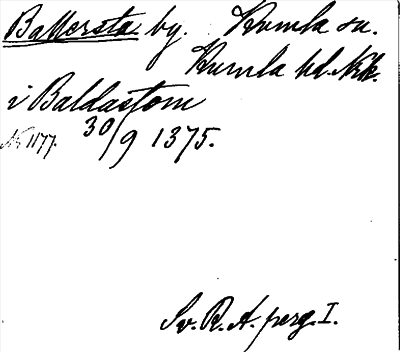 Ballersta by. Humla sn.
Humla hd. Nrk.
i Baldastom
N 1177. 30/9 1375.
Sv. R. A. perg. I.